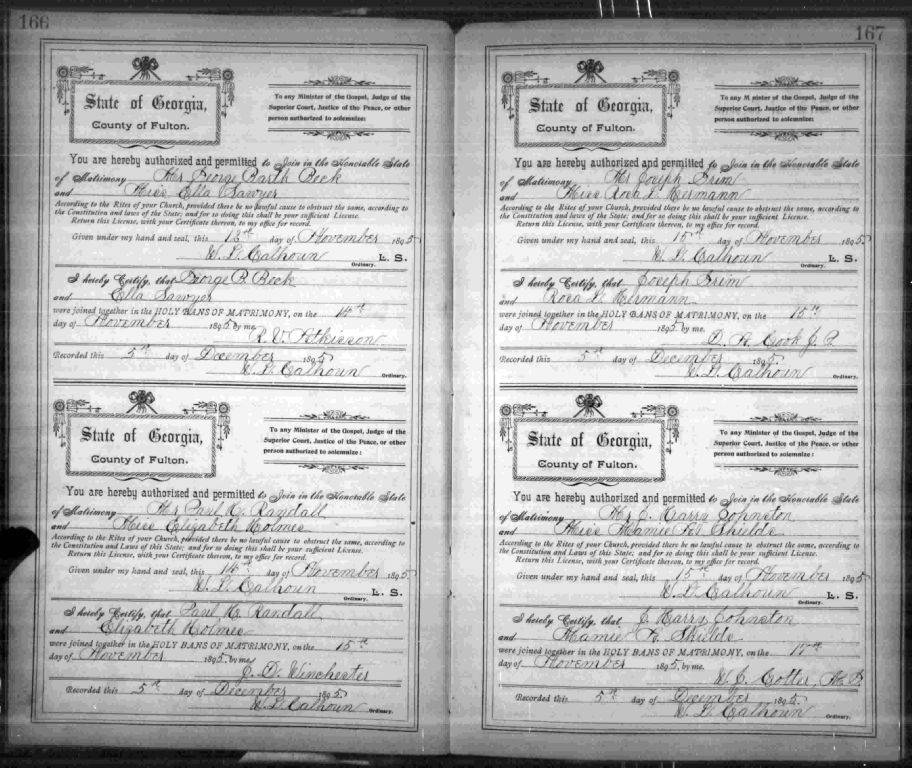 166
State of Georgia,
County of Fulton.
To any Minister of the Gospel, Judge of the
Superior Court, Justice of the Peace, or other
person authorized to solemnize:
You are hereby authorized and permitted to Join in the Honorable State
of Matrimony Mr George Barth Beck
and Miss Ella Sawyer
According to the Rites of your Church, provided there be no lawful cause to obstruct the same, according to
the Constitution and laws of the State; and for so doing this shall be your sufficient License.
Return this License, with your Certificate thereon, to my office for record.
Given under my hand and seal, this day of November 1895
W. L. Calhoun L. S.
Ordinary.
I hereby Certify, that George B. Beck
and Ella Sawyer
were joined together in the HOLY BANS OF MATRIMONY, on the 14th
day of November 1895 by me
R. V. Atkisson
Recorded this 5th day of December 1895
W. L. Calhoun
Ordinary.
State of Georgia,
County of Fulton.
To any Minister of the Gospel, Judge of the
Superior Court, Justice of the Peace, or other
person authorized to solemnize:
You are hereby authorized and permitted to Join in the Honorable State
of Matrimony Mr Paul H. Randall
and Miss Elizabeth Holmes
According to the Rites of your Church, provided there be no lawful cause to obstruct the same, according to
the Constitution and Laws of this State; and for so doing this shall be your sufficient License.
Return this License, with your Certificate thereon, to my office for record.
Given under my hand and seal, this 14th day of November 1895
W. L. Calhoun L. S.
Ordinary.
I hereby Certify, that Paul H. Randall
and Elizabeth Holmes
were joined together in the HOLY BANS OF MATRIMONY, on the 15th
day of November 1895 by me,
J. D. Winchester
Recorded this 5th day of December 1895
W. L. Calhoun
Ordinary.
167
State of Georgia,
County of Fulton.
To any Minister of the Gospel, Judge of the
Superior Court, Justice of the Peace, or other
person authorized to solemnize:
You are hereby authorized and permitted to Join in the Honorable State
of Matrimony Mr Joseph Grim
and Miss Rosa L. Hermann
According to the Rites of your Church, provided there be no lawful cause to obstruct the same, according to
the Constitution and laws of the State; and for so doing this shall be your sufficient License.
Return this License, with your Certificate thereon, to my office for record.
Given under my hand and seal, this 15th day of November 1895
W. L. Calhoun L. S.
Ordinary.
I hereby Certify, that Joseph Grim
and Rosa L. Hermann
were joined together in the HOLY BANS OF MATRIMONY, on the 15th
day of November 1895 by me.
D. R. Cook J. P.
Recorded this 5th day of December 1895
W. L. Calhoun
Ordinary.
State of Georgia,
County of Fulton.
To any Minister of the Gospel, Judge of the
Superior Court, Justice of the Peace, or other
person authorized to solemnize:
You are hereby authorized and permitted to Join in the Honorable State
of Matrimony Mr J. Harry Johnston
and Miss Mamie Shields
According to the Rites of your Church, provided there be no lawful cause to obstruct the same, according to
the Constitution and Laws of this State; and for so doing this shall be your sufficient License.
Return this License, with your Certificate thereon, to my office for record.
Given under my hand and seal, this 15th day of November 1895
W. L. Calhoun L. S.
Ordinary.
I hereby Certify, that J. Harry Johnston
and Mamie Shields
were joined together in the HOLY BANS OF MATRIMONY, on the
day of November 1895 by me.
W. J. Cotter,
Recorded this 5th day of December 1895
W. L. Calhoun
Ordinary.